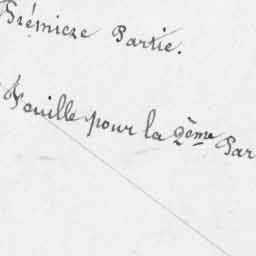 Prémière Partie.
Fouille pour la 2ème Par